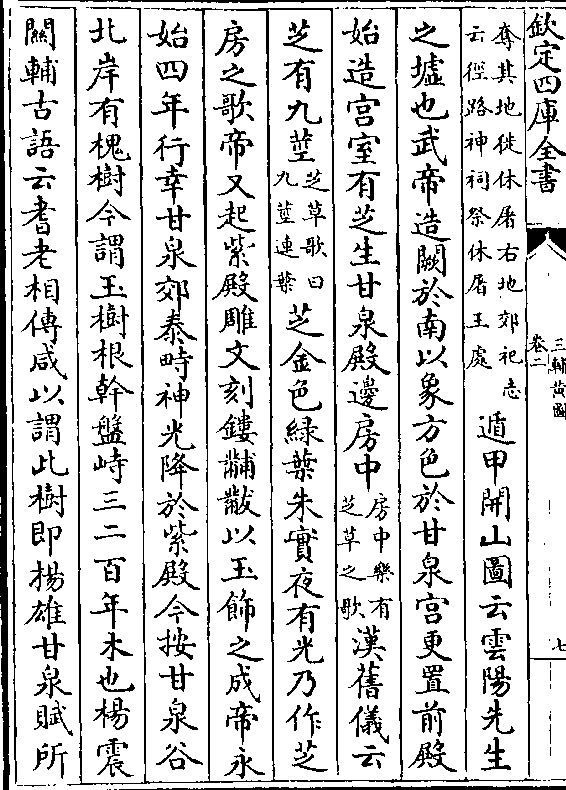 欽定四庫全書
三輔黃圖
卷二
七
奪其地徙休屠右地郊祀志
云徑路神祠祭休屠王處
遁甲開山圖云雲陽先生
之墟也武帝造闕於南以象方色於甘泉宫更置前殿
始造宫室有芝生甘泉殿邊房中房中樂有
芝草之歌漢舊儀云
芝有九莖芝草歌曰
九莖連葉芝金色緑葉朱實夜有光乃作芝
房之歌帝又起紫殿雕文刻鏤黼黻以玉飾之成帝永
始四年行幸甘泉郊泰畤神光降於紫殿今按甘泉谷
北岸有槐樹今謂玉樹根幹盤峙三二百年木也楊震
關輔古語云耆老相傳咸以謂此樹即揚雄甘泉賦所